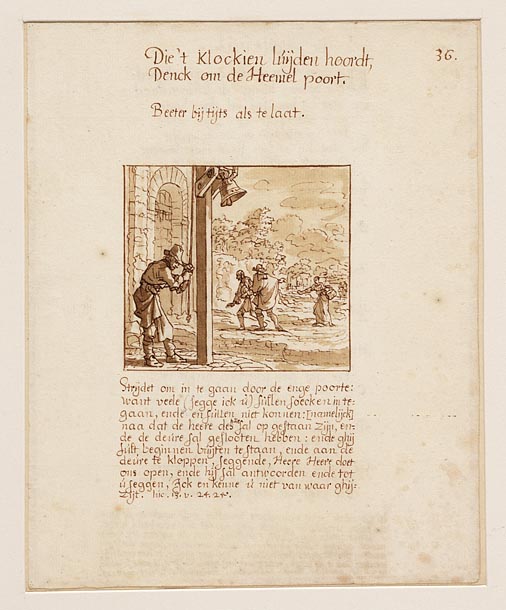 Die't Klockien luijden hoordt,
36.
Denck om de Heemel poort.
Beeter bij tijts als te laat.
Strijdet om in te gaan door de enge poorte:
want veele (segge ick ú) sullen soecken in te-
gaan, ende en súllen niet konnen: [namelijck]
naa dat de heere des húys sal op gestaan zijn, en-
de de deúre sal geslooten hebben: ende ghij
súlt beginnen búijten te staan, ende aan de
deúre te kloppen, seggende, Heere Heere doet
ons open, ende hij sal antwoorden ende tot
ú seggen, Ick en kenne ú niet van waar ghij-
zijt. luc. 13. v. 24. 25.